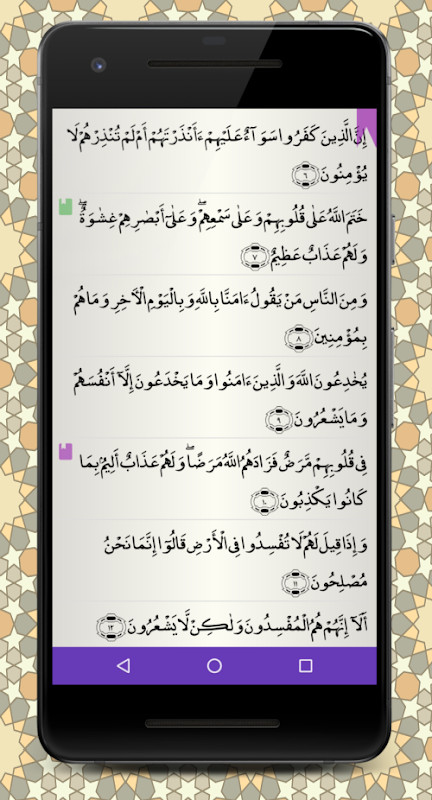 إِنَّ الَّذِينَ كَفَرُوا سَوَآءٌ عَلَيْهِمْ ءَأَنْذَرْتَهُمْ أَمْ لَمْ تُنْذِرْهُمْ لَا
يُؤْمِنُونَ ٦
خَتَمَ اللَّهُ عَلَىٰ قُلُوبِهِمْ وَعَلَىٰ سَمْعِهِمْ ۖ وَعَلَىٰٓ أَبْصَٰرِهِمْ غِشَٰوَةٌ ۖ
وَلَهُمْ عَذَابٌ عَظِيمٌ ٧
وَمِنَ النَّاسِ مَنْ يَقُولُ ءَامَنَّا بِاللَّهِ وَبِالْيَوْمِ الْآخِرِ وَمَا هُمْ
بِمُؤْمِنِينَ ٨
يُخَٰدِعُونَ اللَّهَ وَالَّذِينَ ءَامَنُوا وَمَا يَخْدَعُونَ إِلَّآ أَنْفُسَهُمْ
وَمَا يَشْعُرُونَ ٩
فِي قُلُوبِهِمْ مَّرَضٌ فَزَادَهُمُ اللَّهُ مَرَضًا ۖ وَلَهُمْ عَذَابٌ أَلِيمٌ بِمَا
كَانُوا يَكْذِبُونَ ١٠
وَإِذَا قِيلَ لَهُمْ لَا تُفْسِدُوا فِي الْأَرْضِ قَالُوٓا إِنَّمَا نَحْنُ
مُصْلِحُونَ ١١
أَلَآ إِنَّهُمْ هُمُ الْمُفْسِدُونَ وَلَٰكِنْ لَّا يَشْعُرُونَ ١٢